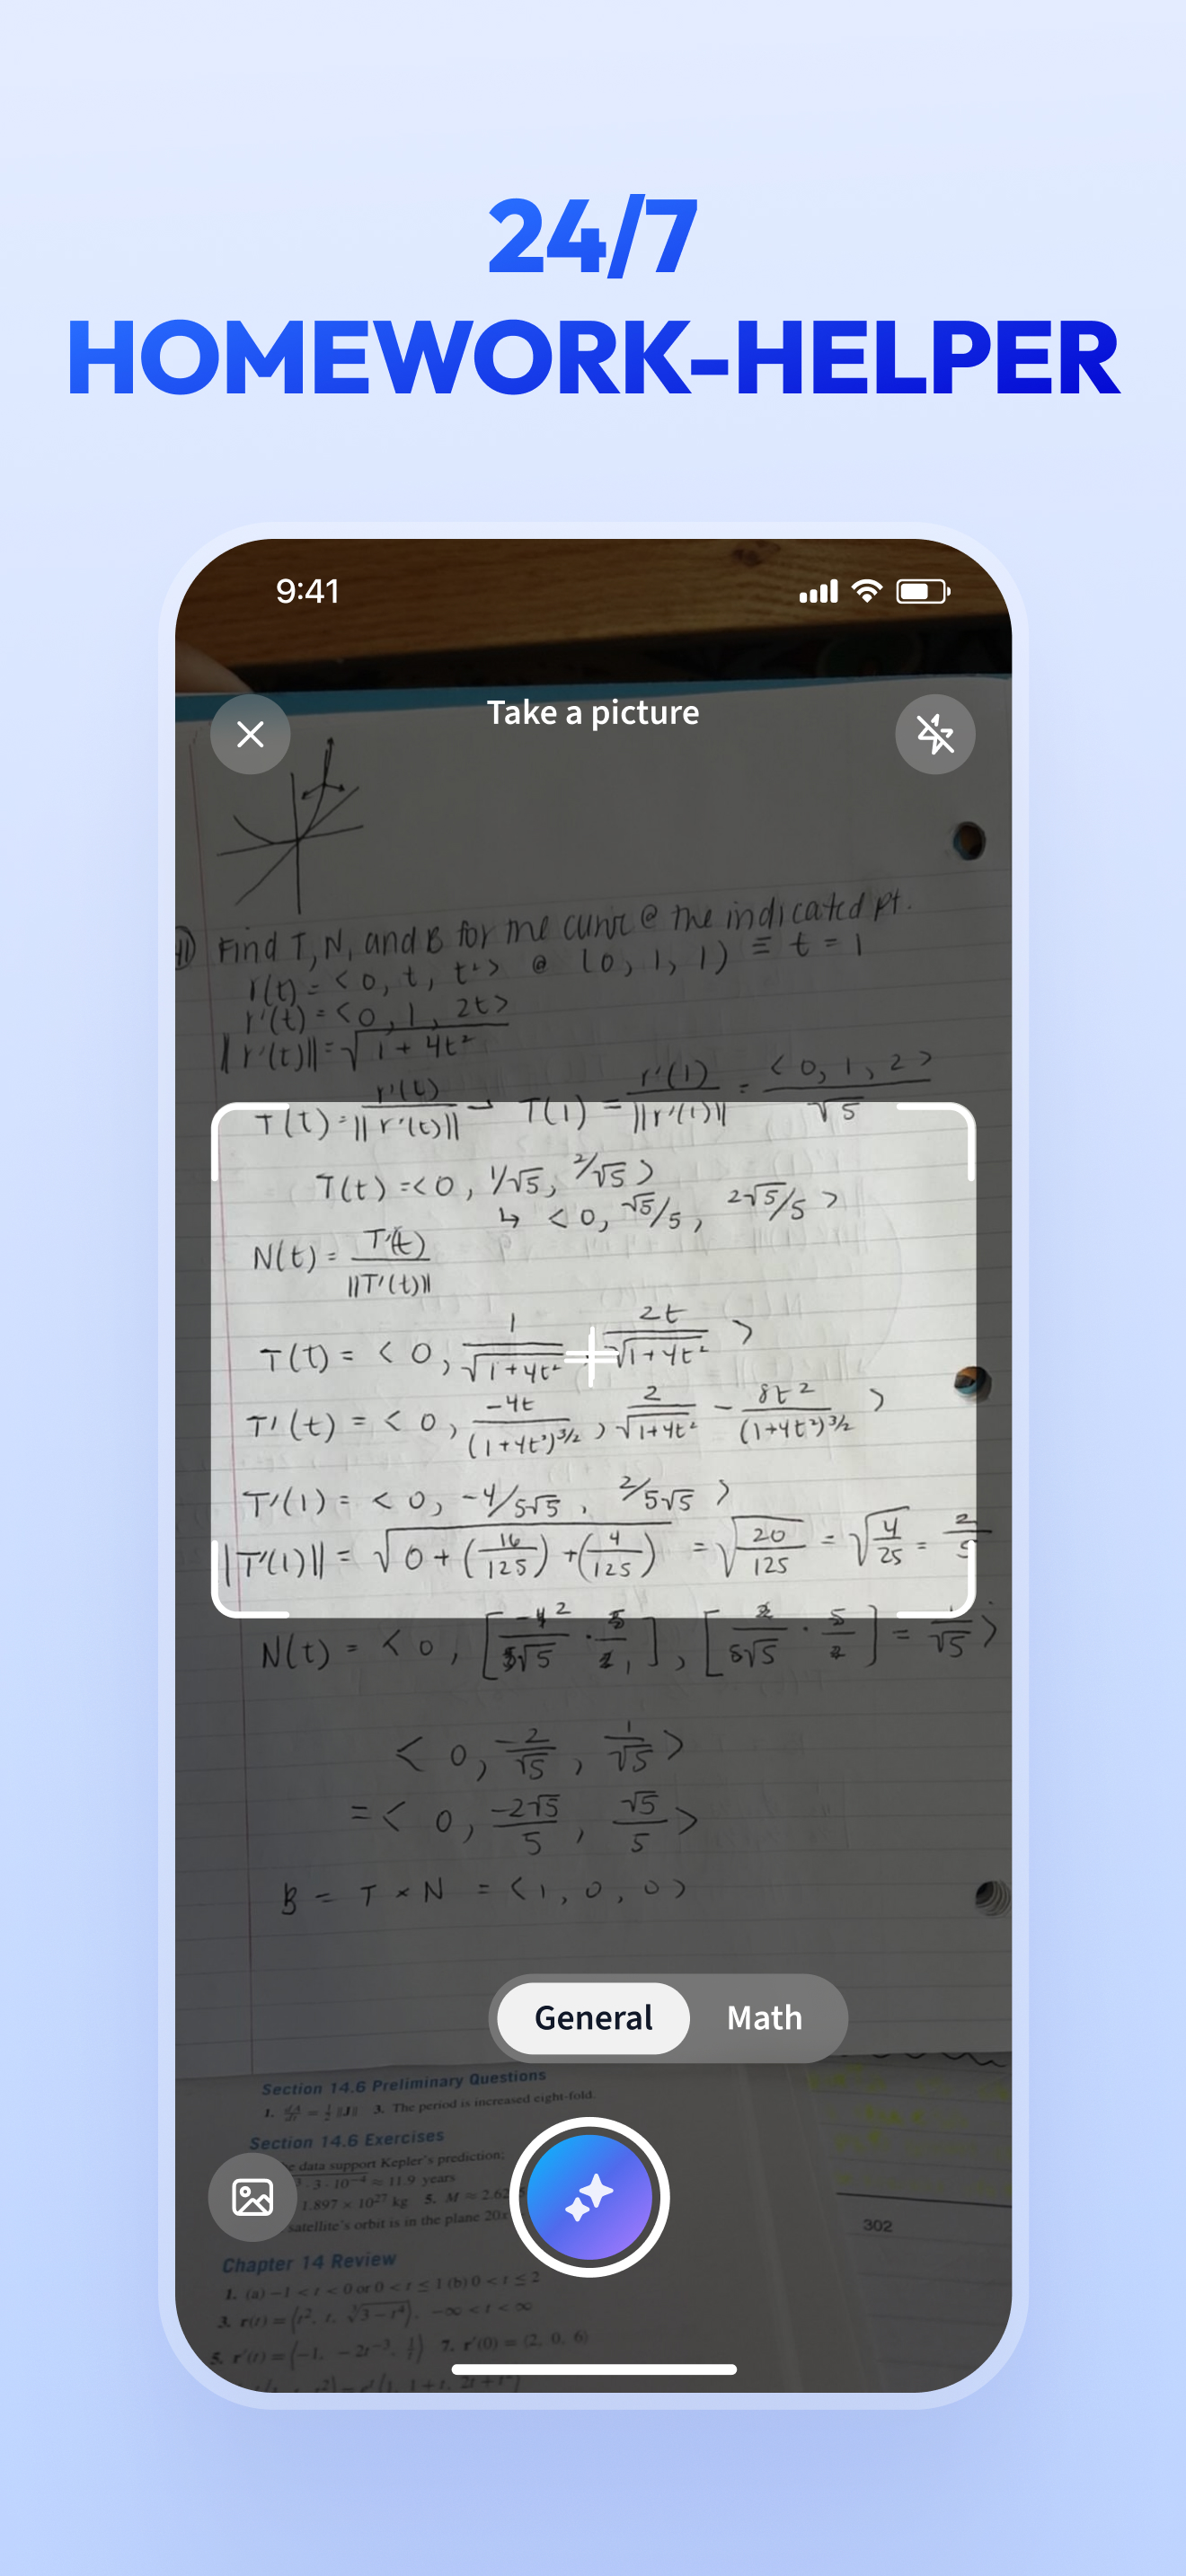 24/7
HOMEWORK-HELPER
9:41
Take a picture
Find T, N, and B for the curve @ the indicated pt.
r(t) = <0, t, t²> @ (0, 1, 1) ≡ t = 1
r'(t) = <0, 1, 2t>
||r'(t)|| = √(1 + 4t²)
T(t) = r'(t)/||r'(t)|| → T(1) = r'(1)/||r'(1)|| = <0, 1, 2>/√5
T(t) = <0, 1/√5, 2/√5>
↳ <0, √5/5, 2√5/5>
N(t) = T'(t)/||T'(t)||
T(t) = <0, 1/√(1+4t²) 2t/√(1+4t²)>
T'(t) = <0, -4t/(1+4t²)^3/2, 2/√(1+4t²) - 8t²/(1+4t²)^3/2>
T'(1) = <0, -4/5√5, 2/5√5>
||T'(1)|| = √(0 + (16/125) + (4/125)) = √(20/125) = √(4/25) = 2/5
N(t) = <0, [-4/5√5 · 5/2], [2/5√5 · 5/2] = 1/√5>
<0, -2/√5, 1/√5>
= <0, -2√5/5, √5/5>
B = T × N = <1, 0, 0>
General Math
Section 14.6 Preliminary Questions
1. dA/dt = 1/2 ||J|| 3. The period is increased eight-fold.
Section 14.6 Exercises
data support Kepler's prediction;
· 3 · 10⁻⁴ ≈ 11.9 years
1.897 × 10²⁷ kg 5. M ≈ 2.62
satellite's orbit is in the plane 20x
302
Chapter 14 Review
1. (a) −1 < t < 0 or 0 < t ≤ 1 (b) 0 < t ≤ 2
3. r(t) = ⟨t², t, √(3 − t⁴)⟩, −∞ < t < ∞
5. r'(t) = ⟨−1, −2t⁻³, 1/t⟩ 7. r'(0) = ⟨2, 0, 6⟩